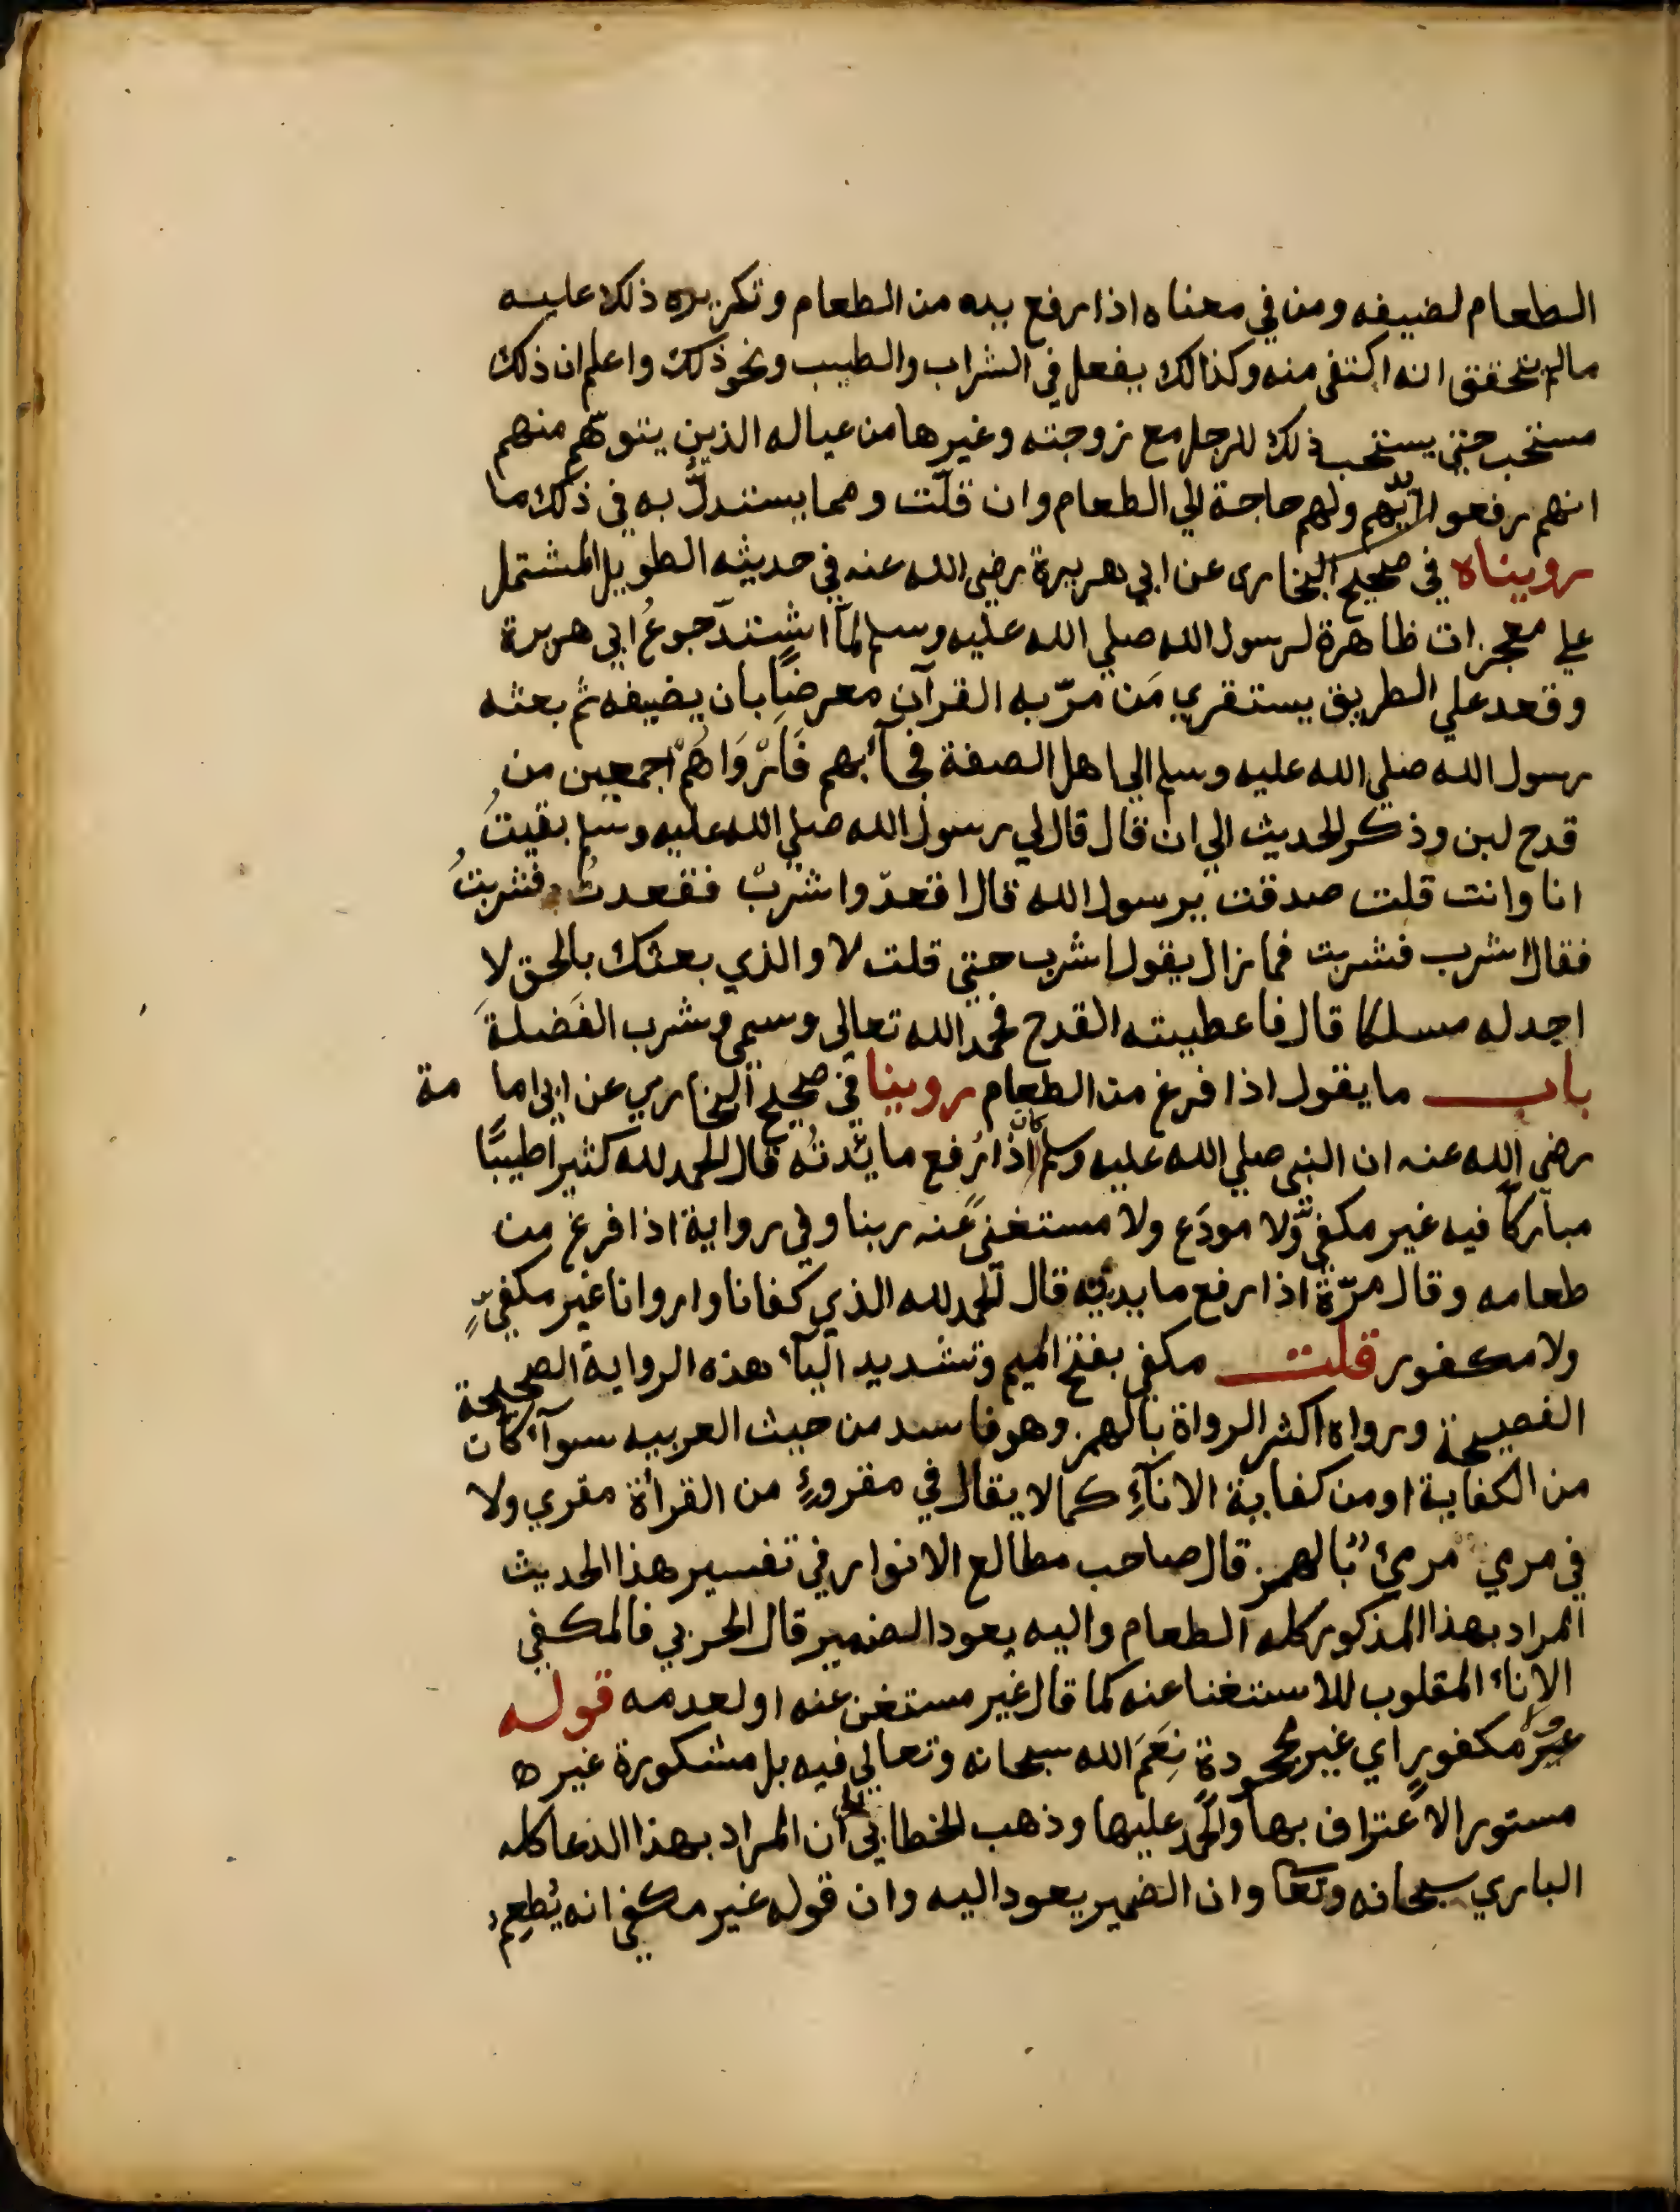 الطعام لضيفه ومن في معناه اذا رفع يده من الطعام وتكريره ذلك عليه
مالم يتحقق انه اكتفى منه وكذالك يفعل في الشراب والطيب ونحو ذلك واعلم ان ذلك
مستحب حتي يستحب ذلك للرجل مع زوجته وغيرها من عياله الذين يتوهّم منهم
انهم رفعوا ايديهم ولهم حاجة الي الطعام وان قلّت ومما يستدلّ به في ذلك ما
رويناه في صحيح البخاري عن ابي هريرة رضي الله عنه في حديثه الطويل المشتمل
علي معجزات ظاهرة لرسول الله صلي الله عليه وسلم لمّا اشتدّ جوعُ ابي هريرة
وقعد علي الطريق يستقري مَن مرّ به القرآن معرضًا بان يضيفه ثم بعثه
رسول الله صلي الله عليه وسلم الي اهل الصفة فجآء بهم فَأرْوَاهُمْ اجمعين من
قدح لبن وذكر الحديث الي ان قال قال لي رسول الله صلي الله عليه وسلم بقيتُ
انا وانت قلت صدقت يرسول الله قال اقعدْ واشربْ فقعدتُ فشربتُ
فقال اشرب فشربت فما زال يقول اشرب حتي قلت لا والذي بعثك بالحق لا
اجد له مسلكا قال فاعطيته القدح فحمد الله تعالي وسمي وشرب الفَضلةَ
باب ما يقول اذا فرغ من الطعام روينا في صحيح البخاري عن ابي اما مة
رضي الله عنه ان النبي صلي الله عليه وسلم كان اذا رُفع مائدتُه قال الحمد لله كثيرا طيبًا
مباركًا فيه غير مكفيّ ولا مودَع ولا مستغنىً عنه ربنا وفي رواية اذا فرغ من
طعامه وقال مرّةً اذا رفع مايدته قال الحمد لله الذي كفانا واروانا غير مكفيٍّ
ولا مكفور قلت مكفي بفتح الميم وتشديد اليآء هذه الرواية الصحيحة
الفصيحة ورواه اكثر الرواة بالهمز وهو فاسد من حيث العربيه سوآء كان
من الكفاية او من كفاية الانآءِ كما لا يقال في مقروءٍ من القرأة مقري ولا
في مرمي مرمئ بالهمز قال صاحب مطالع الانوار في تفسير هذا الحديث
المراد بهذا المذكور كله الطعام واليه يعود الضمير قال الحربي فالمكفي
الاناء المقلوب للاستغنا عنه كما قال غير مستغن عنه او لعدمه قوله
غيرُ مكفورٍ اي غير مجحودةٍ نِعَمَ الله سبحانه وتعالي فيه بل مشكورة غير ه
مستور الاعتراف بها والحمد عليها وذهب الخطابي الي ان المراد بهذا الدعا كله
الباري سبحانه وتعا وان الضمير يعود اليه وان قوله غير مكفي انه يُطعِم